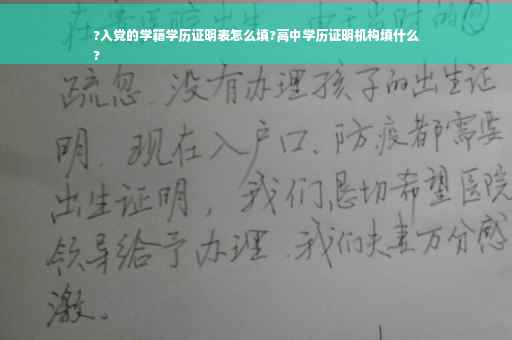 ?入党的学籍学历证明表怎么填?高中学历证明机构填什么
?
疏忽、没有办理孩子的出生证
明、现在入户口、防疫都需要
出生证明，我们恳切希望医院
领导给予办理、我们夫妻万分感
激。